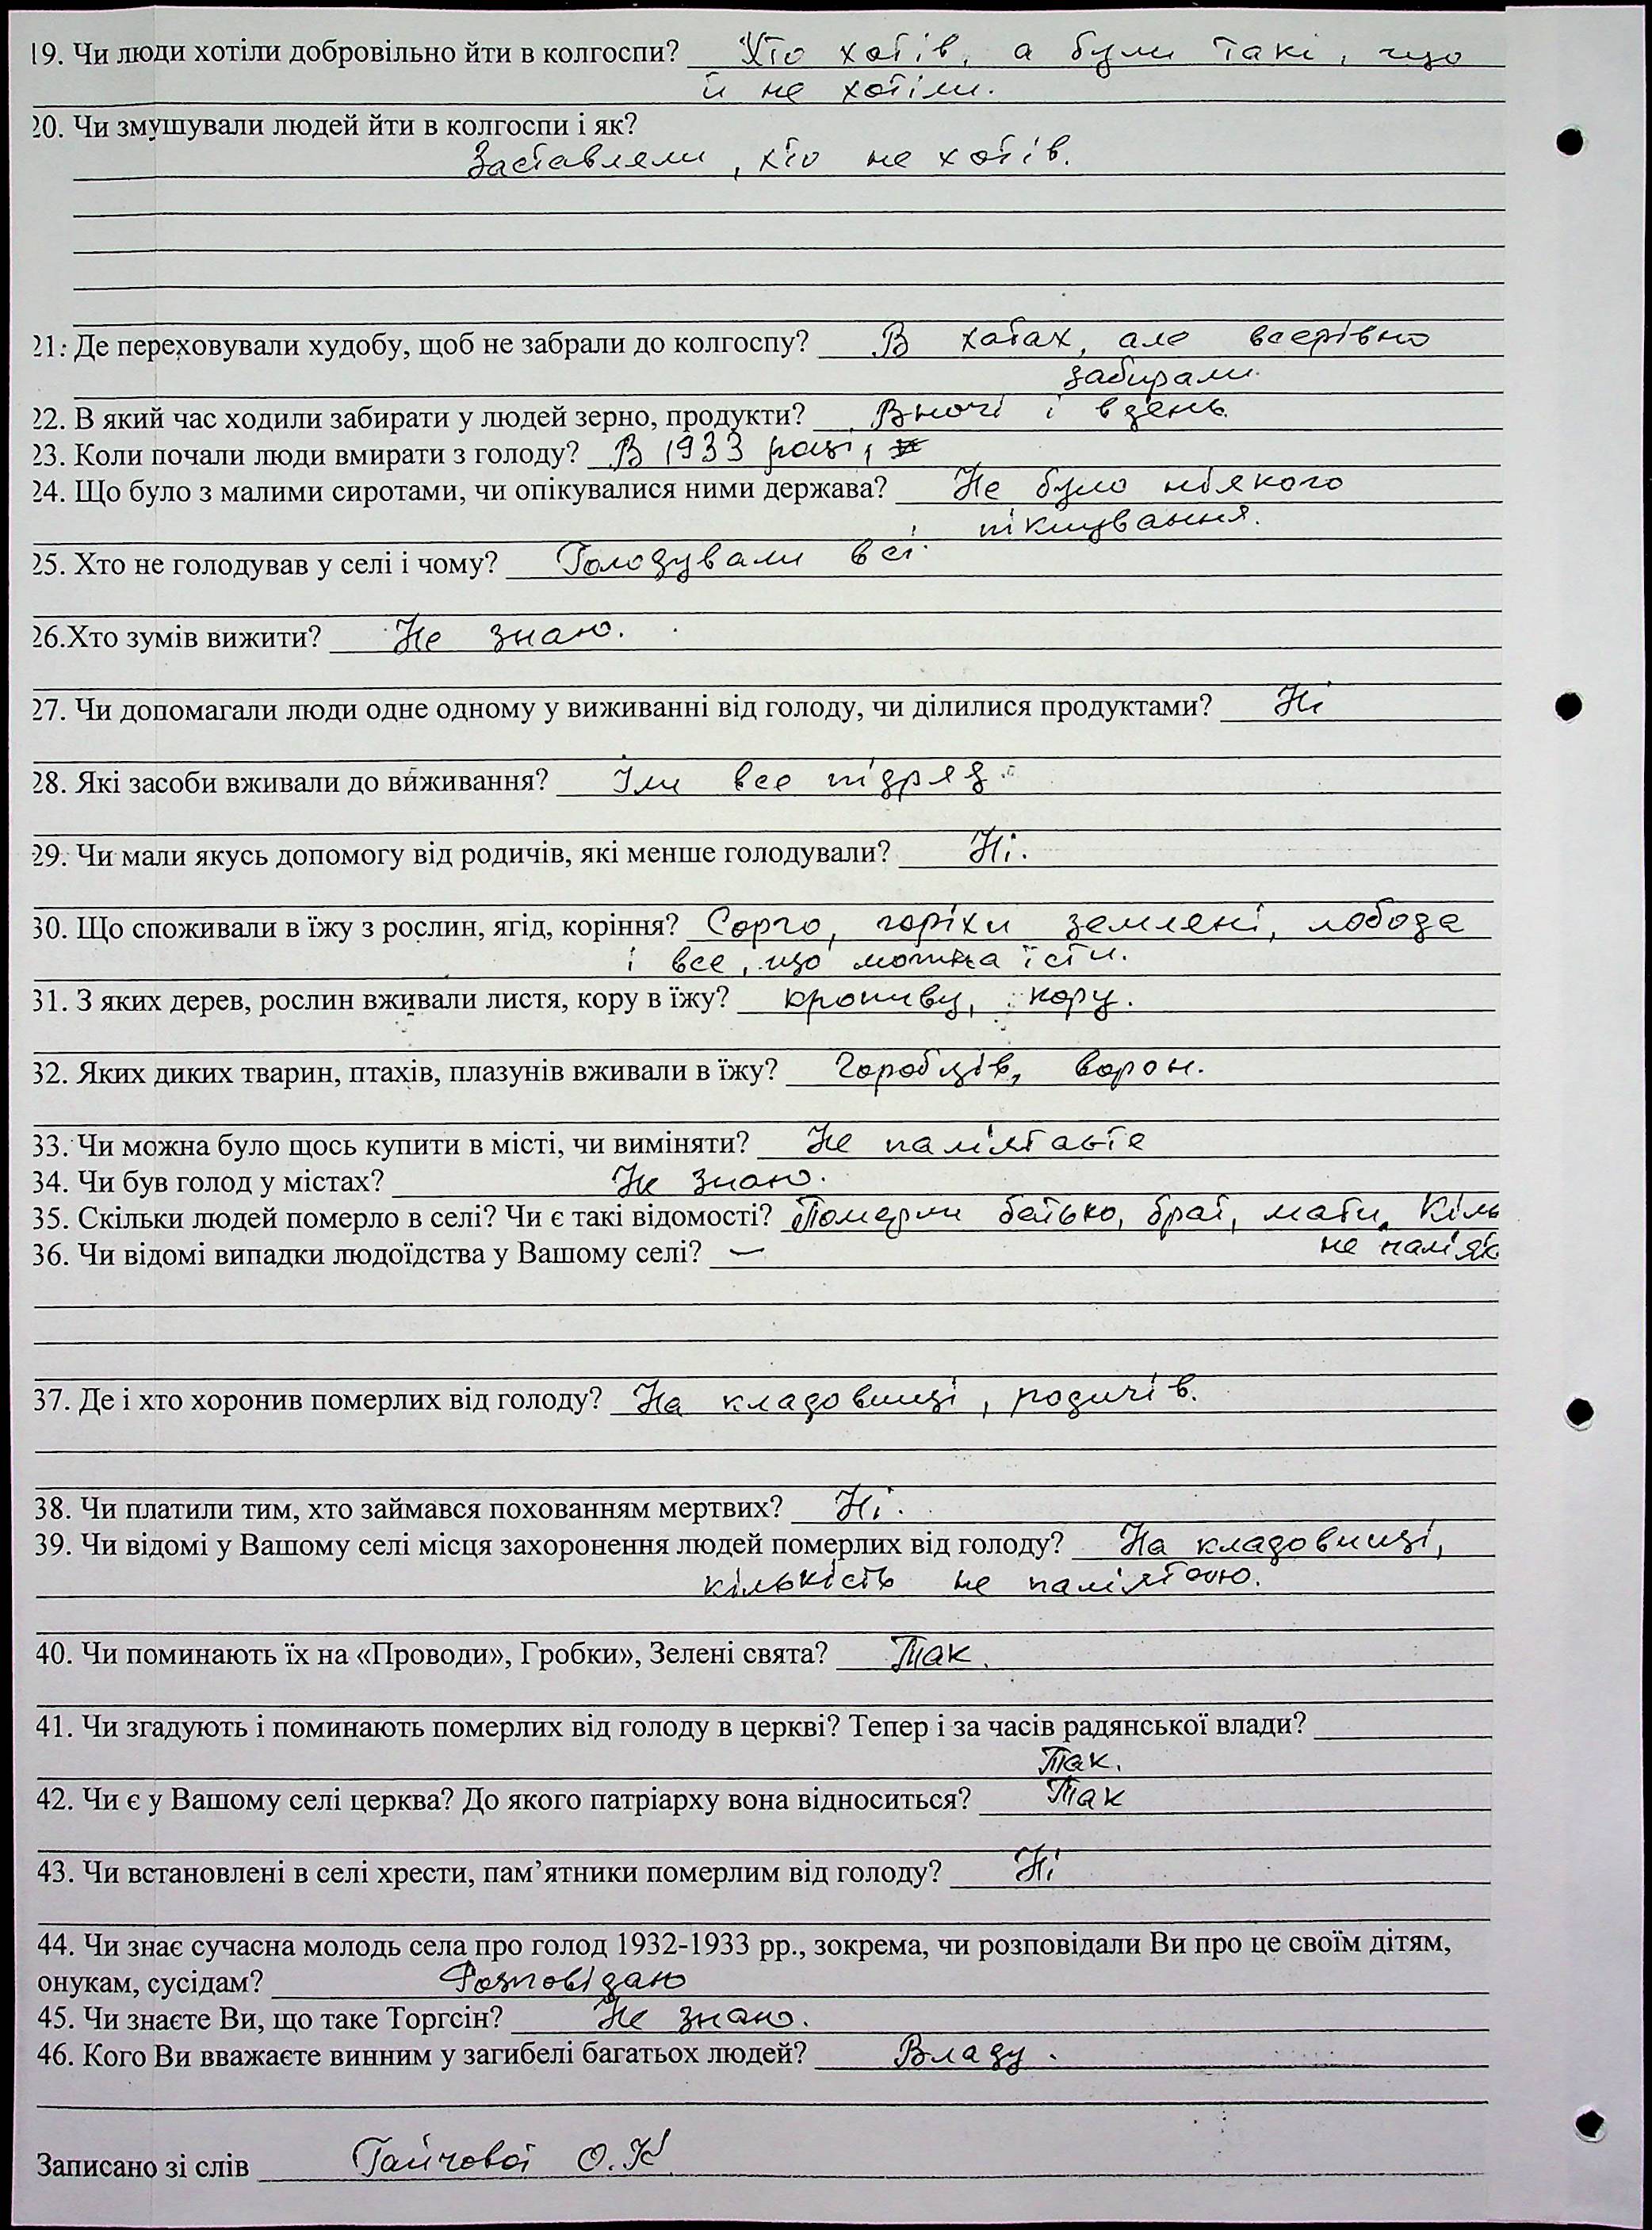 19. Чи люди хотіли добровільно йти в колгоспи? Хто хотів, а були такі, що
й не хотіли.
20. Чи змушували людей йти в колгоспи і як?
Заставляли, хто не хотів.
21. Де переховували худобу, щоб не забрали до колгоспу? В хатах, але всерівно
забирали.
22. В який час ходили забирати у людей зерно, продукти? Вночі і вдень.
23. Коли почали люди вмирати з голоду? В 1933 році,
24. Що було з малими сиротами, чи опікувалися ними держава? Не було ніякого
піклування.
25. Хто не голодував у селі і чому? Голодували всі.
26.Хто зумів вижити? Не знаю.
27. Чи допомагали люди одне одному у виживанні від голоду, чи ділилися продуктами? Ні
28. Які засоби вживали до виживання? Їли все підряд.
29. Чи мали якусь допомогу від родичів, які менше голодували? Ні.
30. Що споживали в їжу з рослин, ягід, коріння? Сорго, горіхи земляні, лобода
і все, що можна їсти.
31. З яких дерев, рослин вживали листя, кору в їжу? кропиву, кору.
32. Яких диких тварин, птахів, плазунів вживали в їжу? Горобців, ворон.
33. Чи можна було щось купити в місті, чи виміняти? Не
34. Чи був голод у містах? Не знаю.
35. Скільки людей померло в селі? Чи є такі відомості? Померли батько, брат, мати. Кіль
не пам'ят
36. Чи відомі випадки людоїдства у Вашому селі? —
37. Де і хто хоронив померлих від голоду? На кладовищі, родичів.
38. Чи платили тим, хто займався похованням мертвих? Ні.
39. Чи відомі у Вашому селі місця захоронення людей померлих від голоду? На кладовищі,
кількість не пам'ятаю.
40. Чи поминають їх на «Проводи», Гробки», Зелені свята? Так.
41. Чи згадують і поминають померлих від голоду в церкві? Тепер і за часів радянської влади?
Так.
42. Чи є у Вашому селі церква? До якого патріарху вона відноситься? Так
43. Чи встановлені в селі хрести, пам’ятники померлим від голоду? Ні
44. Чи знає сучасна молодь села про голод 1932-1933 рр., зокрема, чи розповідали Ви про це своїм дітям,
онукам, сусідам? Розповідаю
45. Чи знаєте Ви, що таке Торгсін? Не знаю.
46. Кого Ви вважаєте винним у загибелі багатьох людей? Владу.
Записано зі слів О.К